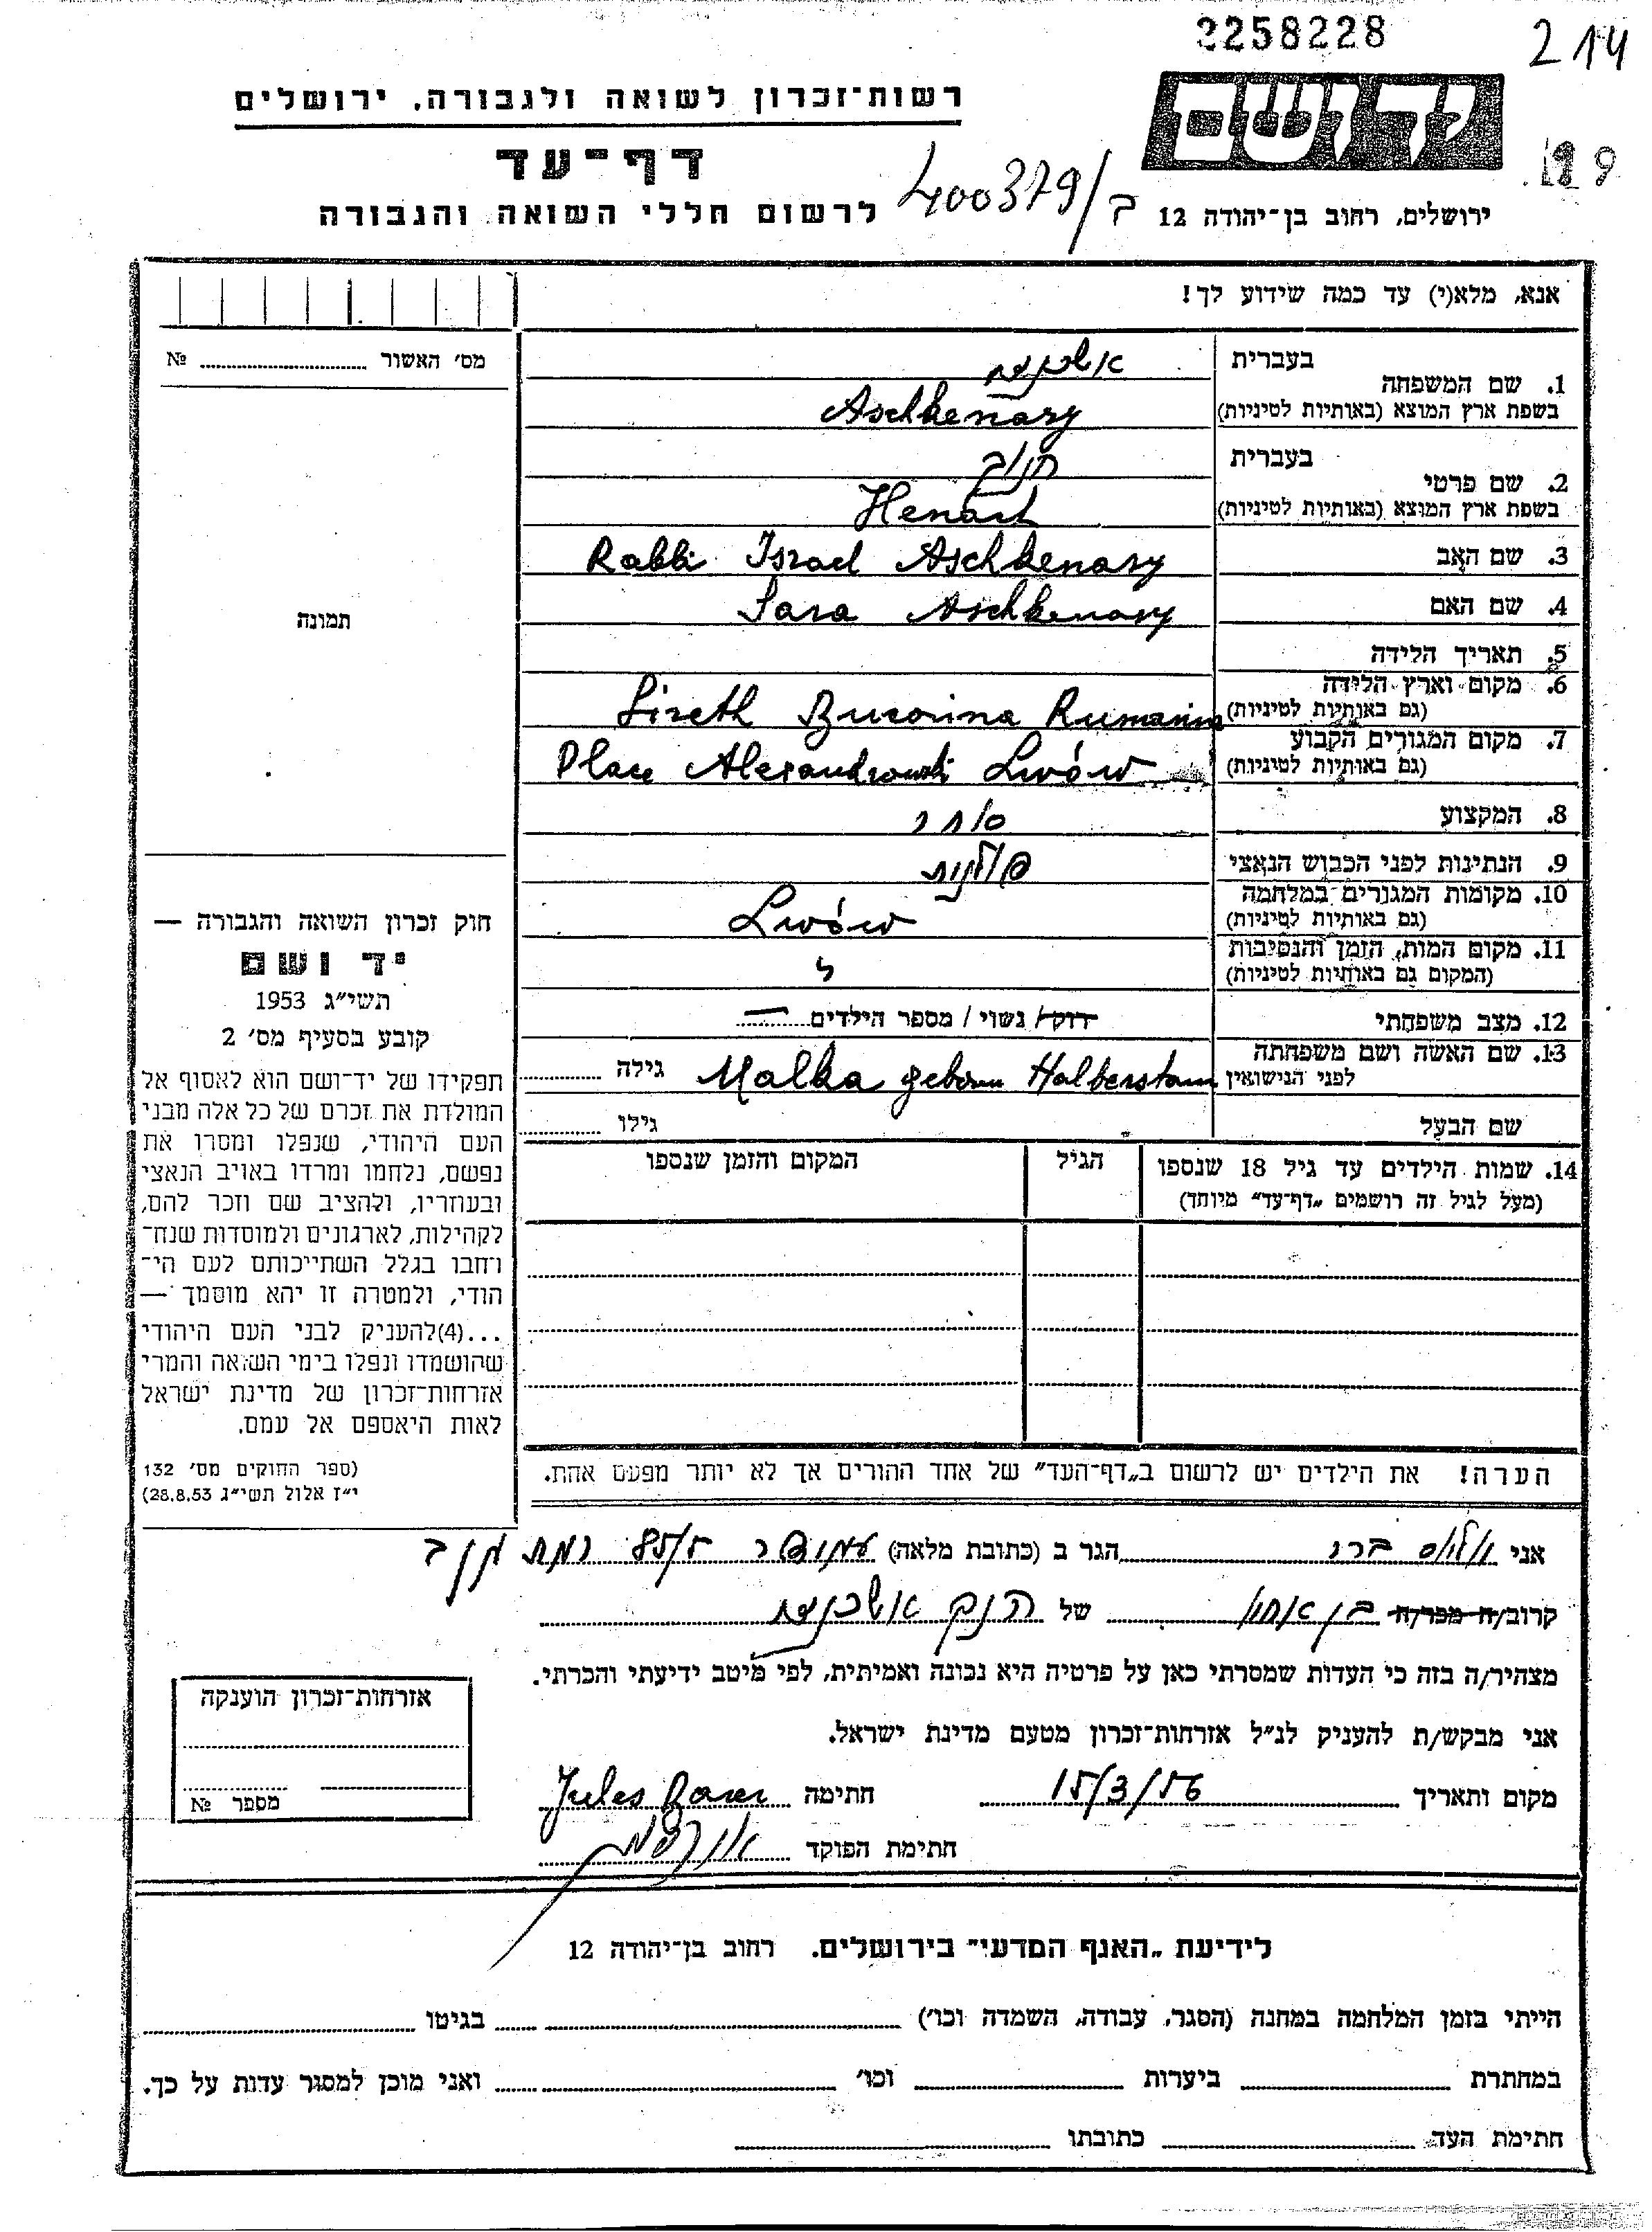 2258228
214
רשות־זכרון לשואה ולגבורה, ירושלים
יד ושם
דף־עד
199
לרשום חללי השואה והגבורה
400379/ב
ירושלים, רחוב בן־יהודה 12
אנא, מלא(י) עד כמה שידוע לך!
מס׳ האשור № ........
1. שם המשפחה בעברית אשכנזי
בשפת ארץ המוצא (באותיות לטיניות) Aschkenasy
2. שם פרטי בעברית חנוך
בשפת ארץ המוצא (באותיות לטיניות) Henoch
3. שם האב Rabbi Israel Aschkenasy
4. שם האם Sara Aschkenasy
תמונה
5. תאריך הלידה
6. מקום וארץ הלידה
(גם באותיות לטיניות) Sireth Bucovina Rumania
7. מקום המגורים הקבוע
(גם באותיות לטיניות) Place Alexandrowski Lwów
8. המקצוע סוחר
9. הנתינות לפני הכבוש הנאצי פולנית
10. מקומות המגורים במלחמה
(גם באותיות לטיניות) Lwów
11. מקום המות, הזמן והנסיבות
(המקום גם באותיות לטיניות)
12. מצב משפחתי רווק/ נשוי / מספר הילדים —
13. שם האשה ושם משפחתה
לפני הנישואין Malka geboren Halberstam גילה ........
שם הבעל גילו ........
14. שמות הילדים עד גיל 18 שנספו
(מעל לגיל זה רושמים „דף־עד״ מיוחד)
הגיל
המקום והזמן שנספו
חוק זכרון השואה והגבורה —
יד ושם
תשי״ג 1953
קובע בסעיף מס׳ 2
תפקידו של יד־ושם הוא לאסוף אל
המולדת את זכרם של כל אלה מבני
העם היהודי, שנפלו ומסרו את
נפשם, נלחמו ומרדו באויב הנאצי
ובעוזריו, ולהציב שם וזכר להם,
לקהילות, לארגונים ולמוסדות שנח־
רחבו בגלל השתייכותם לעם הי־
הודי, ולמטרה זו יהא מוסמך —
...(4)להעניק לבני העם היהודי
שהושמדו ונפלו בימי השואה והמרי
אזרחות־זכרון של מדינת ישראל
לאות היאספם אל עמם.
(ספר החוקים מס׳ 132
י״ז אלול תשי״ג 28.8.53)
הערה! את הילדים יש לרשום ב„דף־העד״ של אחד ההורים אך לא יותר מפעם אחת.
אני הגר ב (כתובת מלאה) 85/ רמת גן ב
קרוב/ה מכר/ה בן אחיו של הנך אשכנזי
מצהיר/ה בזה כי העדות שמסרתי כאן על פרטיה היא נכונה ואמיתית, לפי מיטב ידיעתי והכרתי.
אני מבקש/ת להעניק לנ״ל אזרחות־זכרון מטעם מדינת ישראל.
מקום ותאריך 15/3/56 חתימה Jules
חתימת הפוקד
אזרחות־זכרון הוענקה
מספר №
לידיעת „האגף המדעי״ בירושלים. רחוב בן־יהודה 12
הייתי בזמן המלחמה במחנה (הסגר, עבודה, השמדה וכו׳) ........ בגיטו ........
במחתרת ........ ביערות ........ וכו׳ ........ ואני מוכן למסור עדות על כך.
חתימת העד ........ כתובתו ........